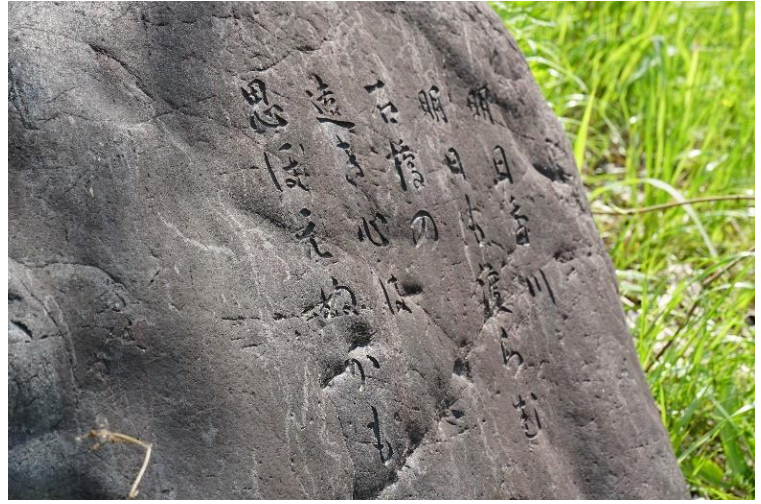 明日香川
明日も渡らむ
石橋の
遠き心は
思ほえぬかも